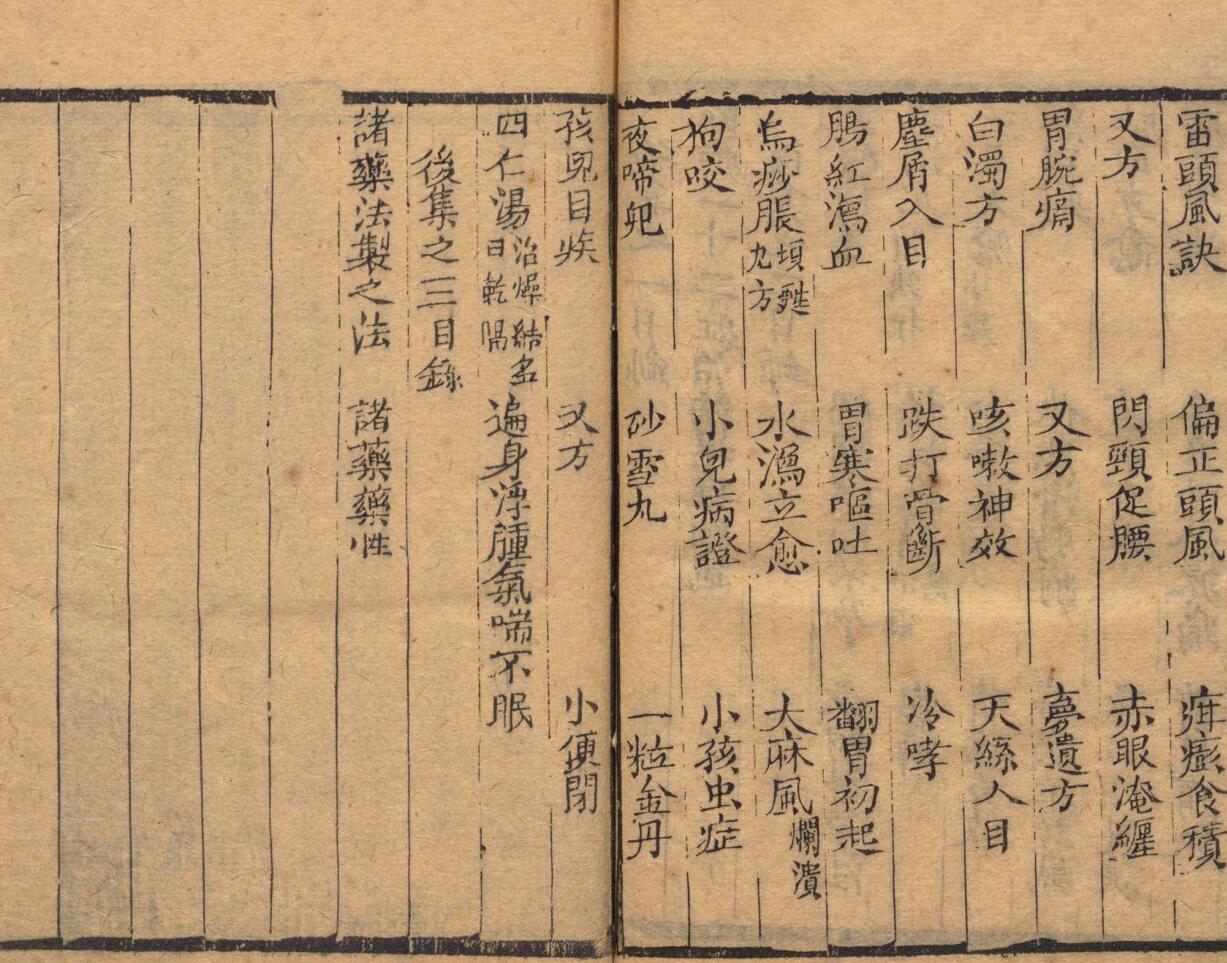 雷頭風訣　偏正頭風　疳膨食積
又方　閃頸促腰　赤眼淹纏
胃腕痛　又方　夢遺方
白濁方　咳嗽神效　天絲人目
塵屑入目　跌打骨斷　冷哮
腸紅瀉血　胃寒嘔吐　翻胃初起
烏痧脹頃甦九方　水瀉立愈　大麻風爛潰
狗咬　小兒病證　小孩虫症
夜啼兒　砂雪丸　一粒金丹
孩兒目疾　又方　小便閉
四仁湯治燥結名曰乾隔　遍身浮腫氣喘不眠
後集之三目錄
諸藥法製之法　諸藥藥性